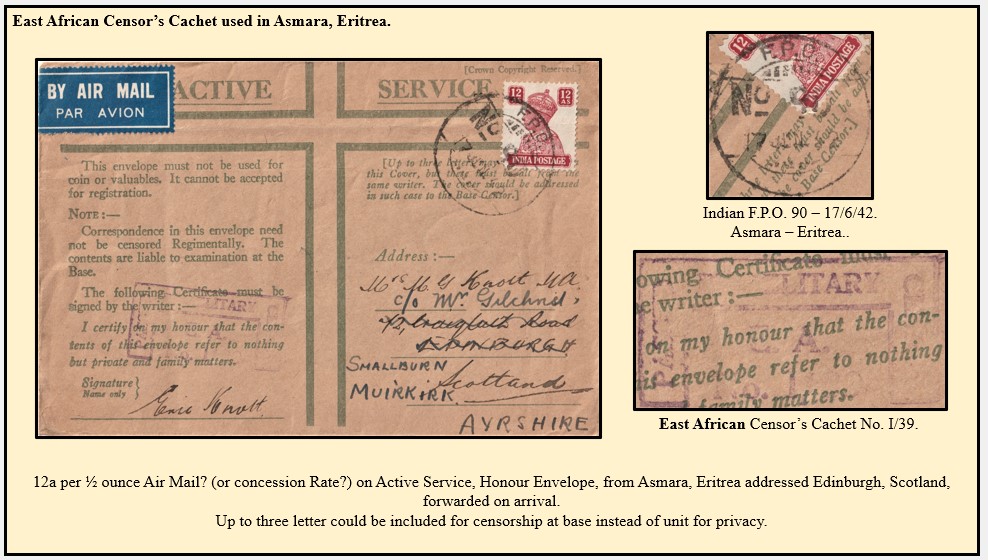 East African Censor's Cachet used in Asmara, Eritrea.
BY AIR MAIL
PAR AVION
ACTIVE
SERVICE
[Crown Copyright Reserved.]
12 12
AS
INDIA POSTAGE
F.P.O.
No
17
This envelope must not be used for
coin or valuables. It cannot be accepted
for registration.
NOTE:—
Correspondence in this envelope need
not be censored Regimentally. The
contents are liable to examination at the
Base.
The following Certificate must be
signed by the writer:—
I certify on my honour that the con-
tents of this envelope refer to nothing
but private and family matters.
Signature
Name only
MILITARY
[Up to three letters may
this Cover, but these must be all from the
same writer. The cover should be addressed
in such case to the Base Censor.]
Address:—
Mrs M G Knott M.A.
c/o Mr Gilchrist,
Road
EDINBURGH
SMALLBURN
MUIRKIRK. Scotland
AYRSHIRE
12
F.P.O.
No
17
INDIA POSTAGE
should be
Base Censor.]
Indian F.P.O. 90 – 17/6/42.
Asmara – Eritrea..
owing Certificate must
e writer:—
LITARY
on my honour that the con-
is envelope refer to nothing
family matters.
East African Censor's Cachet No. I/39.
12a per ½ ounce Air Mail? (or concession Rate?) on Active Service, Honour Envelope, from Asmara, Eritrea addressed Edinburgh, Scotland,
forwarded on arrival.
Up to three letter could be included for censorship at base instead of unit for privacy.